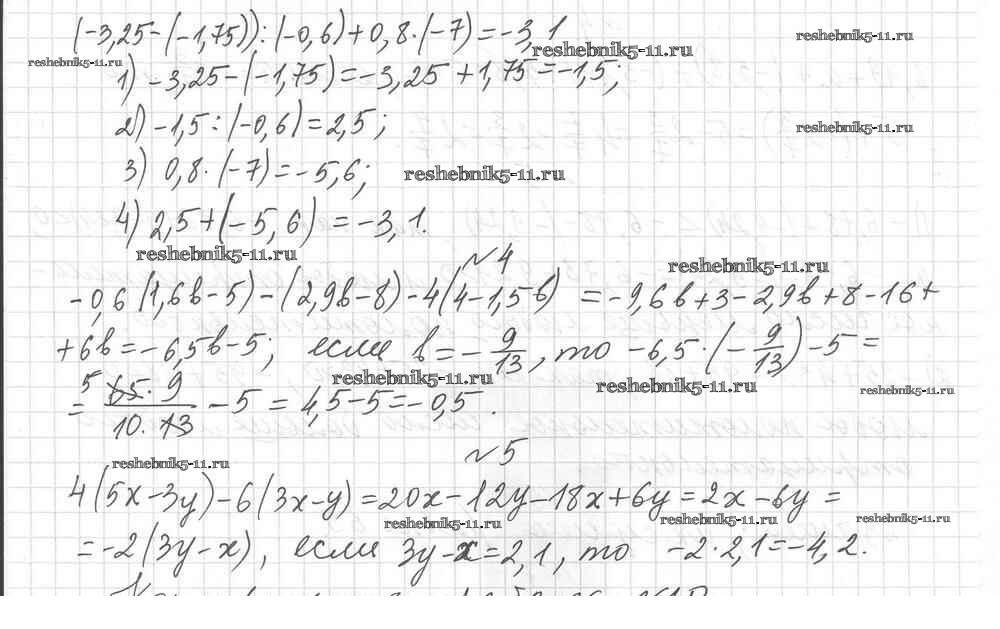 (-3,25-(-1,75)):(-0,6)+0,8·(-7)=-3,1
reshebnik5-11.ru
reshebnik5-11.ru
reshebnik5-11.ru
1) -3,25-(-1,75)=-3,25+1,75=-1,5;
2) -1,5:(-0,6)=2,5;
reshebnik5-11.ru
3) 0,8·(-7)=-5,6;
reshebnik5-11.ru
4) 2,5+(-5,6)=-3,1.
reshebnik5-11.ru
№4
reshebnik5-11.ru
-0,6(1,6b-5)-(2,9b-8)-4(4-1,5b) =-9,6b+3-2,9b+8-16+
+6b=-6,5b-5; если b=-9/13, то -6,5·(-9/13)-5=
reshebnik5-11.ru
reshebnik5-11.ru
reshebnik5-11.ru
= 5 65·9/10·13 -5 = 4,5-5=-0,5.
№5
reshebnik5-11.ru
4(5x-3y)-6(3x-y)=20x-12y-18x+6y=2x-6y=
reshebnik5-11.ru
reshebnik5-11.ru
reshebnik5-11.ru
=-2(3y-x), если 3y-x=2,1, то -2·2,1=-4,2.